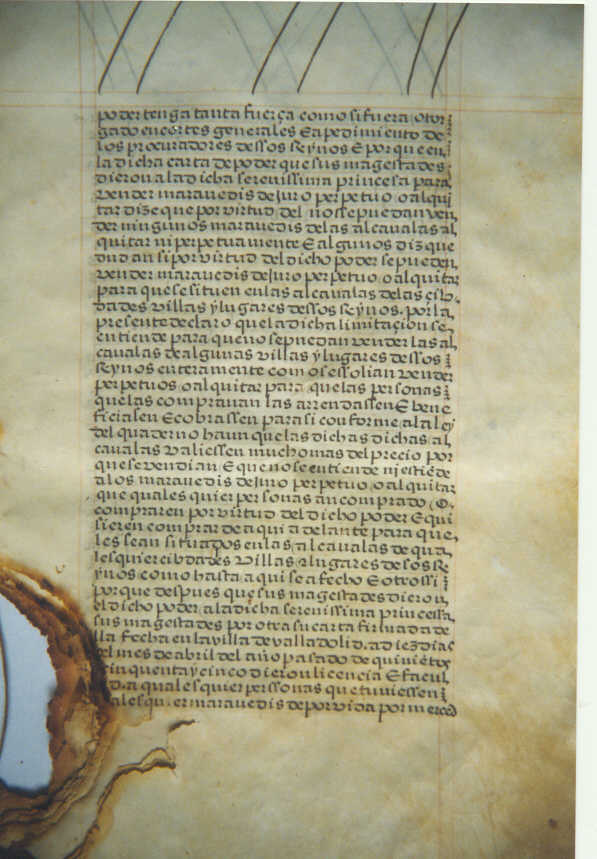 poder tenga tanta fuerça como si fuera otor
gado en cortes generales E a pedimiento de
los procuradores dessos Reynos E porque en
la dicha carta de poder que sus magestades
dieron a la dicha serenissima princesa para
vender maravedis de Juro perpetuo o al qui
tar dize que por virtud del no se puedan ven
der ningunos maravedis de las alcavalas al
quitar ni perpetuamente E algunos diz que
dudan si por virtud del dicho poder se pueden
vender maravedis de Juro perpetuo o al quitar
para que se situen en las alcavalas de las çib
dades villas y lugares dessos Reynos. por la
presente declaro que la dicha limitaçion se
entiende para que no se puedan vender las al
cavalas de algunas villas y lugares dessos
Reynos enteramente como se solian vender
perpetuos o al quitar para que las personas
que las compravan las arrendassen E bene
ficiasen E cobrassen para si conforme a la ley
del quaderno haunque las dichas dichas al
cavalas valiessen mucho mas del precio por
que se vendian E que no se entiende ni estiēde
a los maravedis de Juro perpetuo o al quitar
que qualesquier personas an comprado O
compraren por virtud del dicho poder E qui
sieren comprar de aqui adelante para que
les sean situados en las alcavalas de qua
lesquier cibdades villas E lugares desos Re
ynos como hasta aqui se a fecho E otrossi
porque despues que sus magestades dieron
el dicho poder a la dicha serenissima princessa
sus magestades por otra su carta firmada de
lla fecha en la villa de valladolid. a diez dias
del mes de abril del año pasado de quiniētos
cinquenta y cinco dieron licencia E facul
d. a qualesquier perssonas que tuviessen
alesquier maravedis de por vida por merced